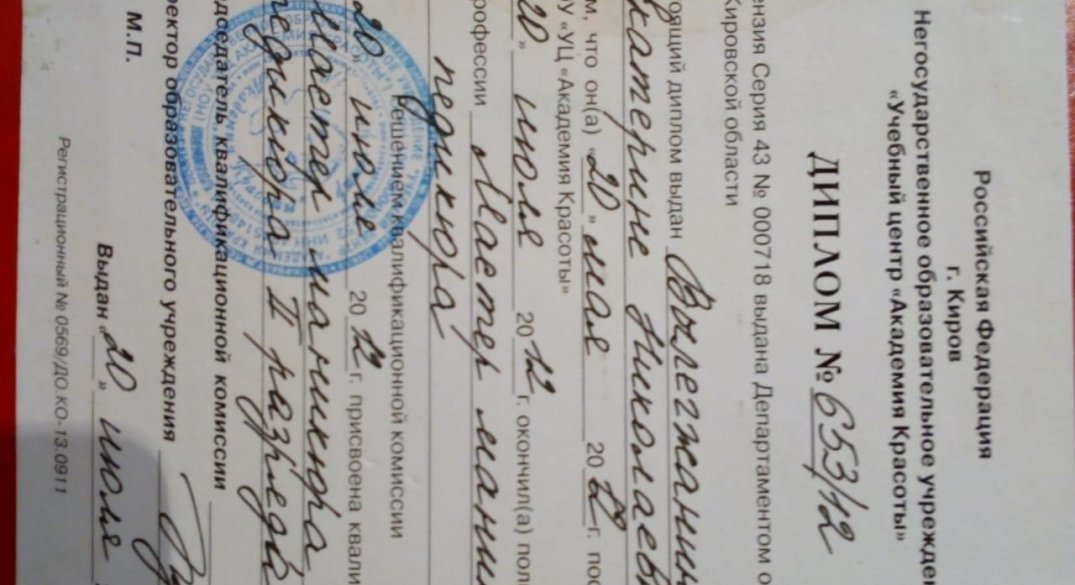 Российская Федерация
г. Киров
Негосударственное образовательное учрежден
«Учебный центр «Академия Красоты»
ДИПЛОМ № 653/12
ензия Серия 43 № 000718 выдана Департаментом о
Кировской области
тоящий диплом выдан Вылегжанин
катерине Николаевн
м, что он(а) «20» мая 2012 г. пос
ОУ «УЦ «Академия Красоты»
20» июля 2012 г. окончил(а) пол
рофессии Мастер маник
педикюра
Решением квалификационной комиссии
20» июля 2012 г. присвоена квали
Мастер маникюра
педикюра II разряда
едседатель квалификационной комиссии
ректор образовательного учреждения
М.П.
Выдан «20» июля
Регистрационный № 0569/ДО.КО-13.0911